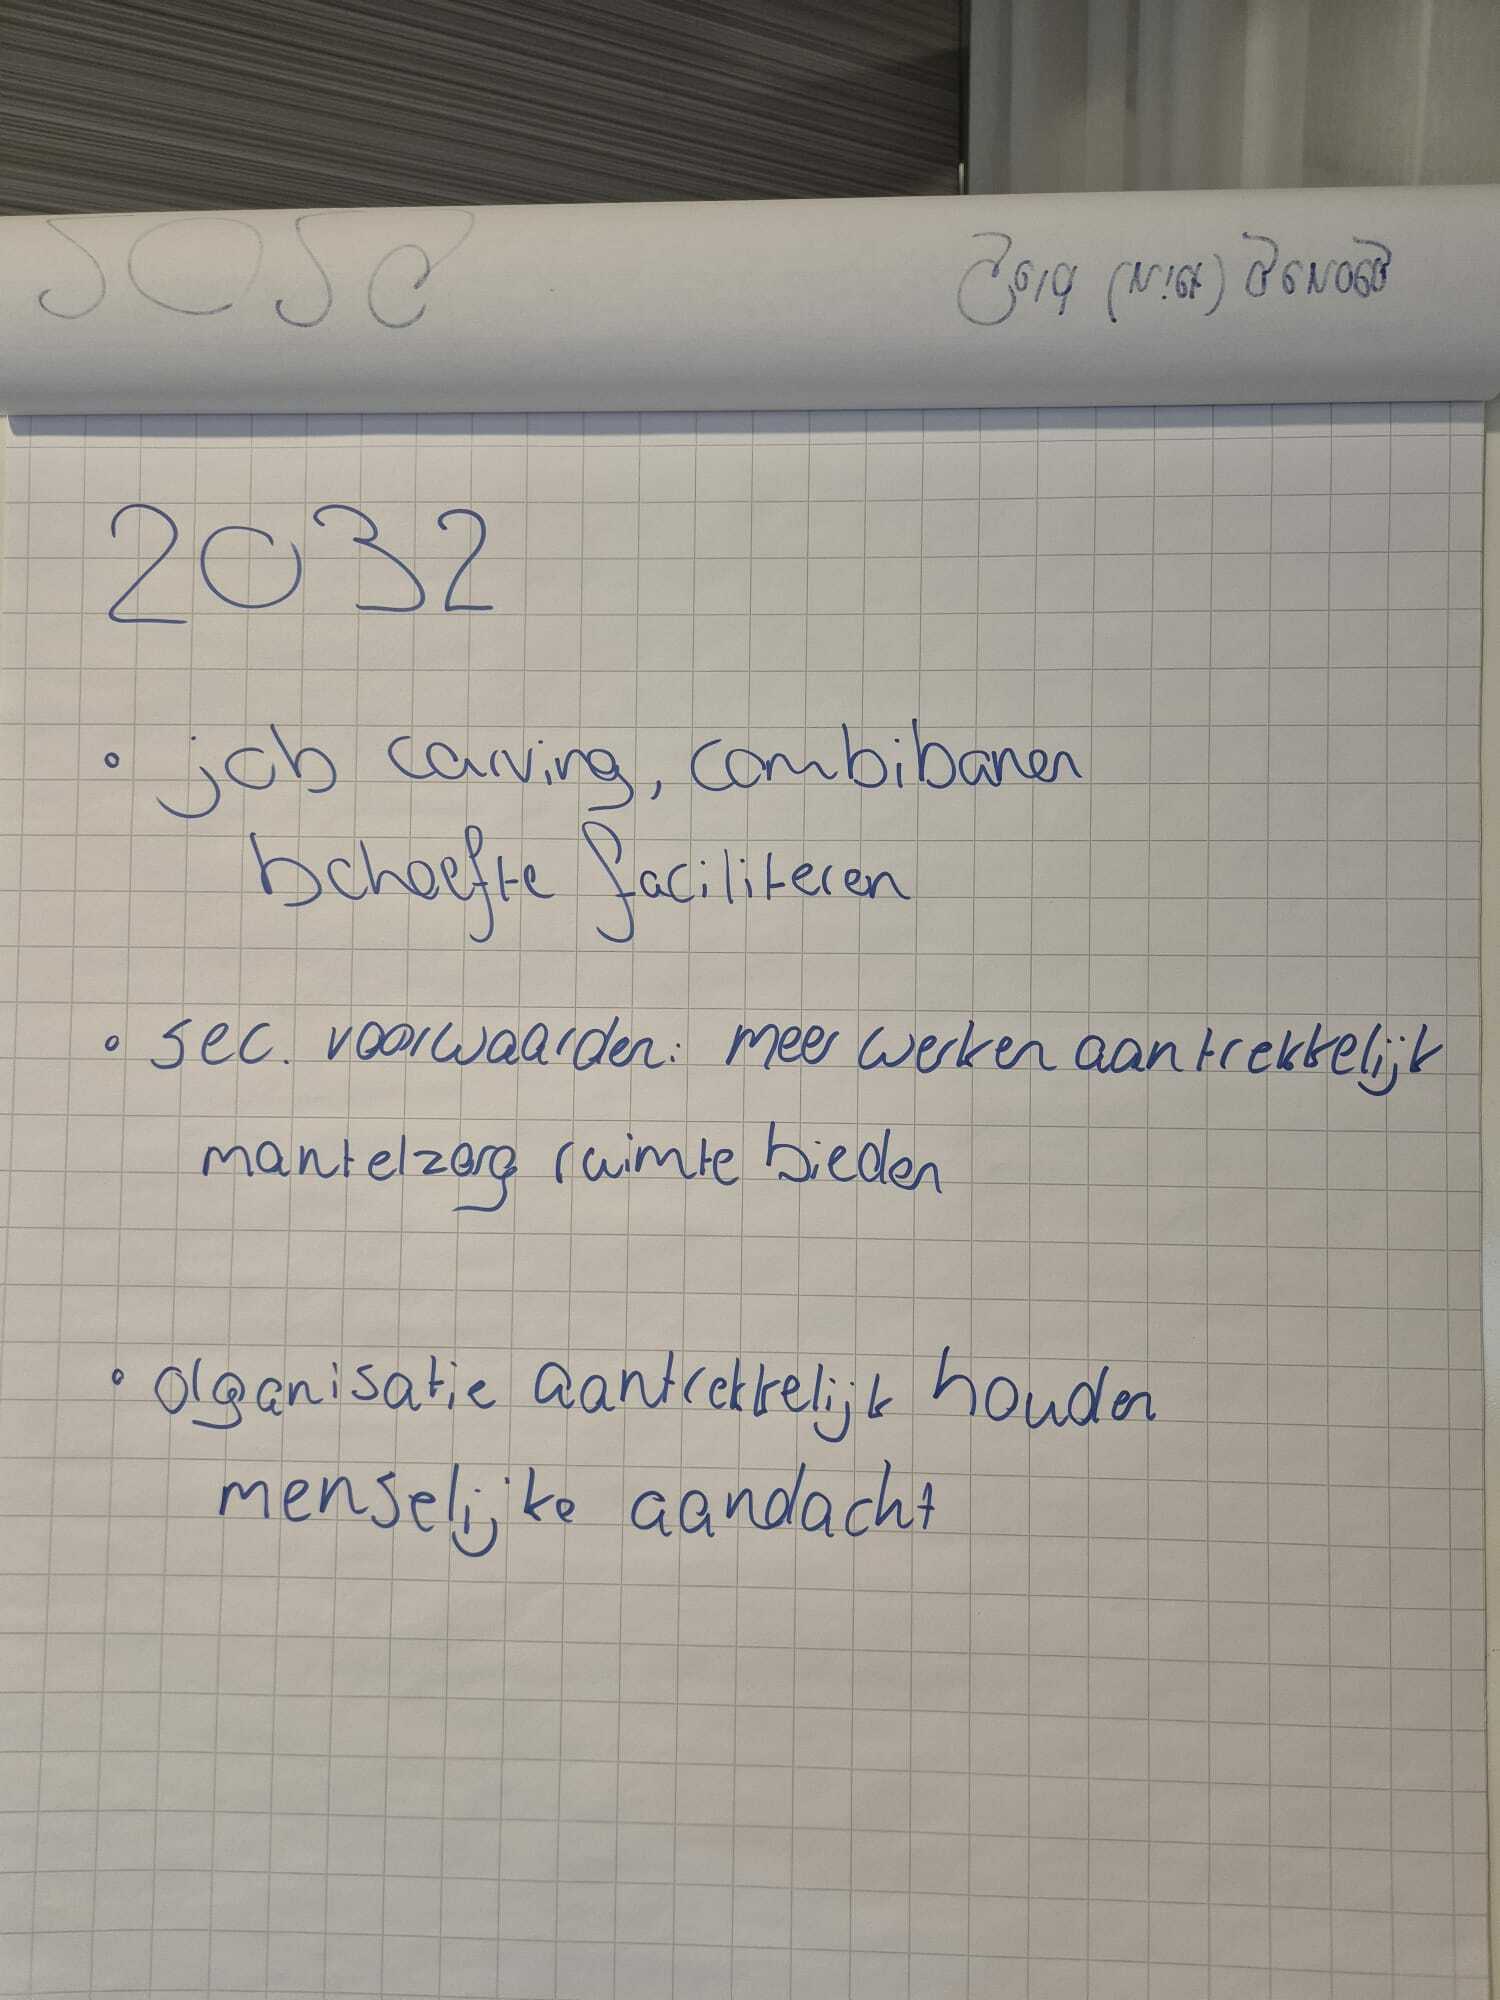 2032
• job carving, combibanen
behoefte faciliteren
• sec. voorwaarden: meer werken aantrekkelijk
mantelzorg ruimte bieden
• organisatie aantrekkelijk houden
menselijke aandacht